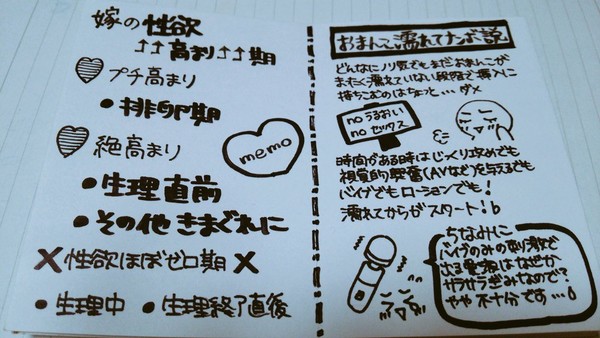 嫁の性欲
↑↑高まり↑↑期
プチ高まり
●排卵期
絶高まり
memo
●生理直前
●その他きまぐれに
✕性欲ほぼゼロ期✕
●生理中 ●生理終了直後
おまんこ濡れてナンボ説
どんなにノリ気でもまだおまんこが
まったく濡れていない段階で挿入に
持ちこむのはちょっと…ダメ
noうるおい
noセックス
時間がある時はじっくり攻めでも
視覚的興奮(AVなど)を与えるでも
バイブでもローションでも!
濡れてからがスタート!
ちなみに
バイブのみの刺激で
出る愛液はなぜか
サラサラぎみなので?
やや不十分です…